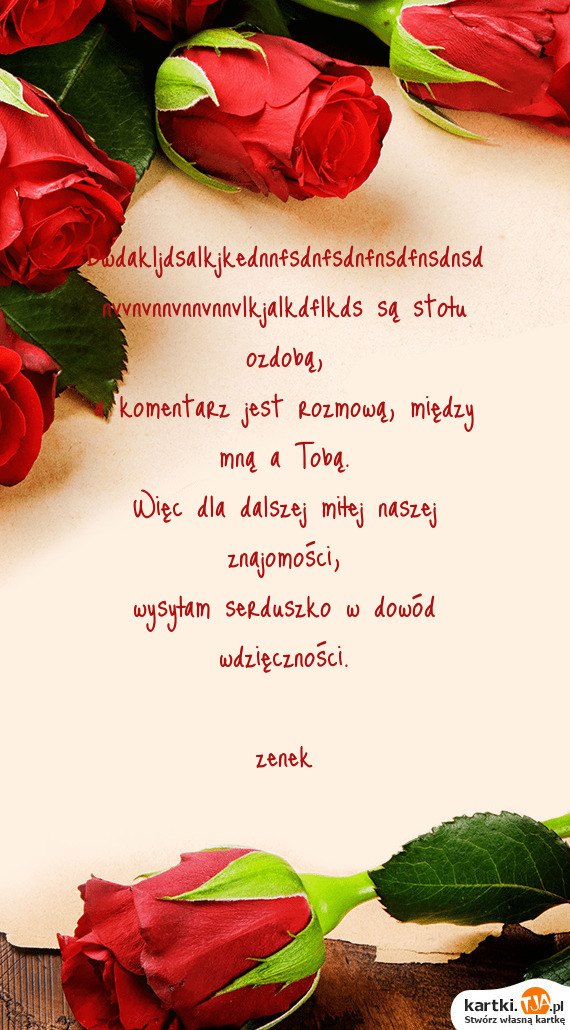 Dwdakljdsalkjkednnfsdnfsdnfnsdfnsdnsd
nvvnvnnvnnvnnvlkjalkdflkds są stołu
ozdobą,
a komentarz jest rozmową, między
mną a Tobą.
Więc dla dalszej miłej naszej
znajomości,
wysyłam serduszko w dowód
wdzięczności.
zenek
kartki.TJA.pl
Stwórz własną kartkę